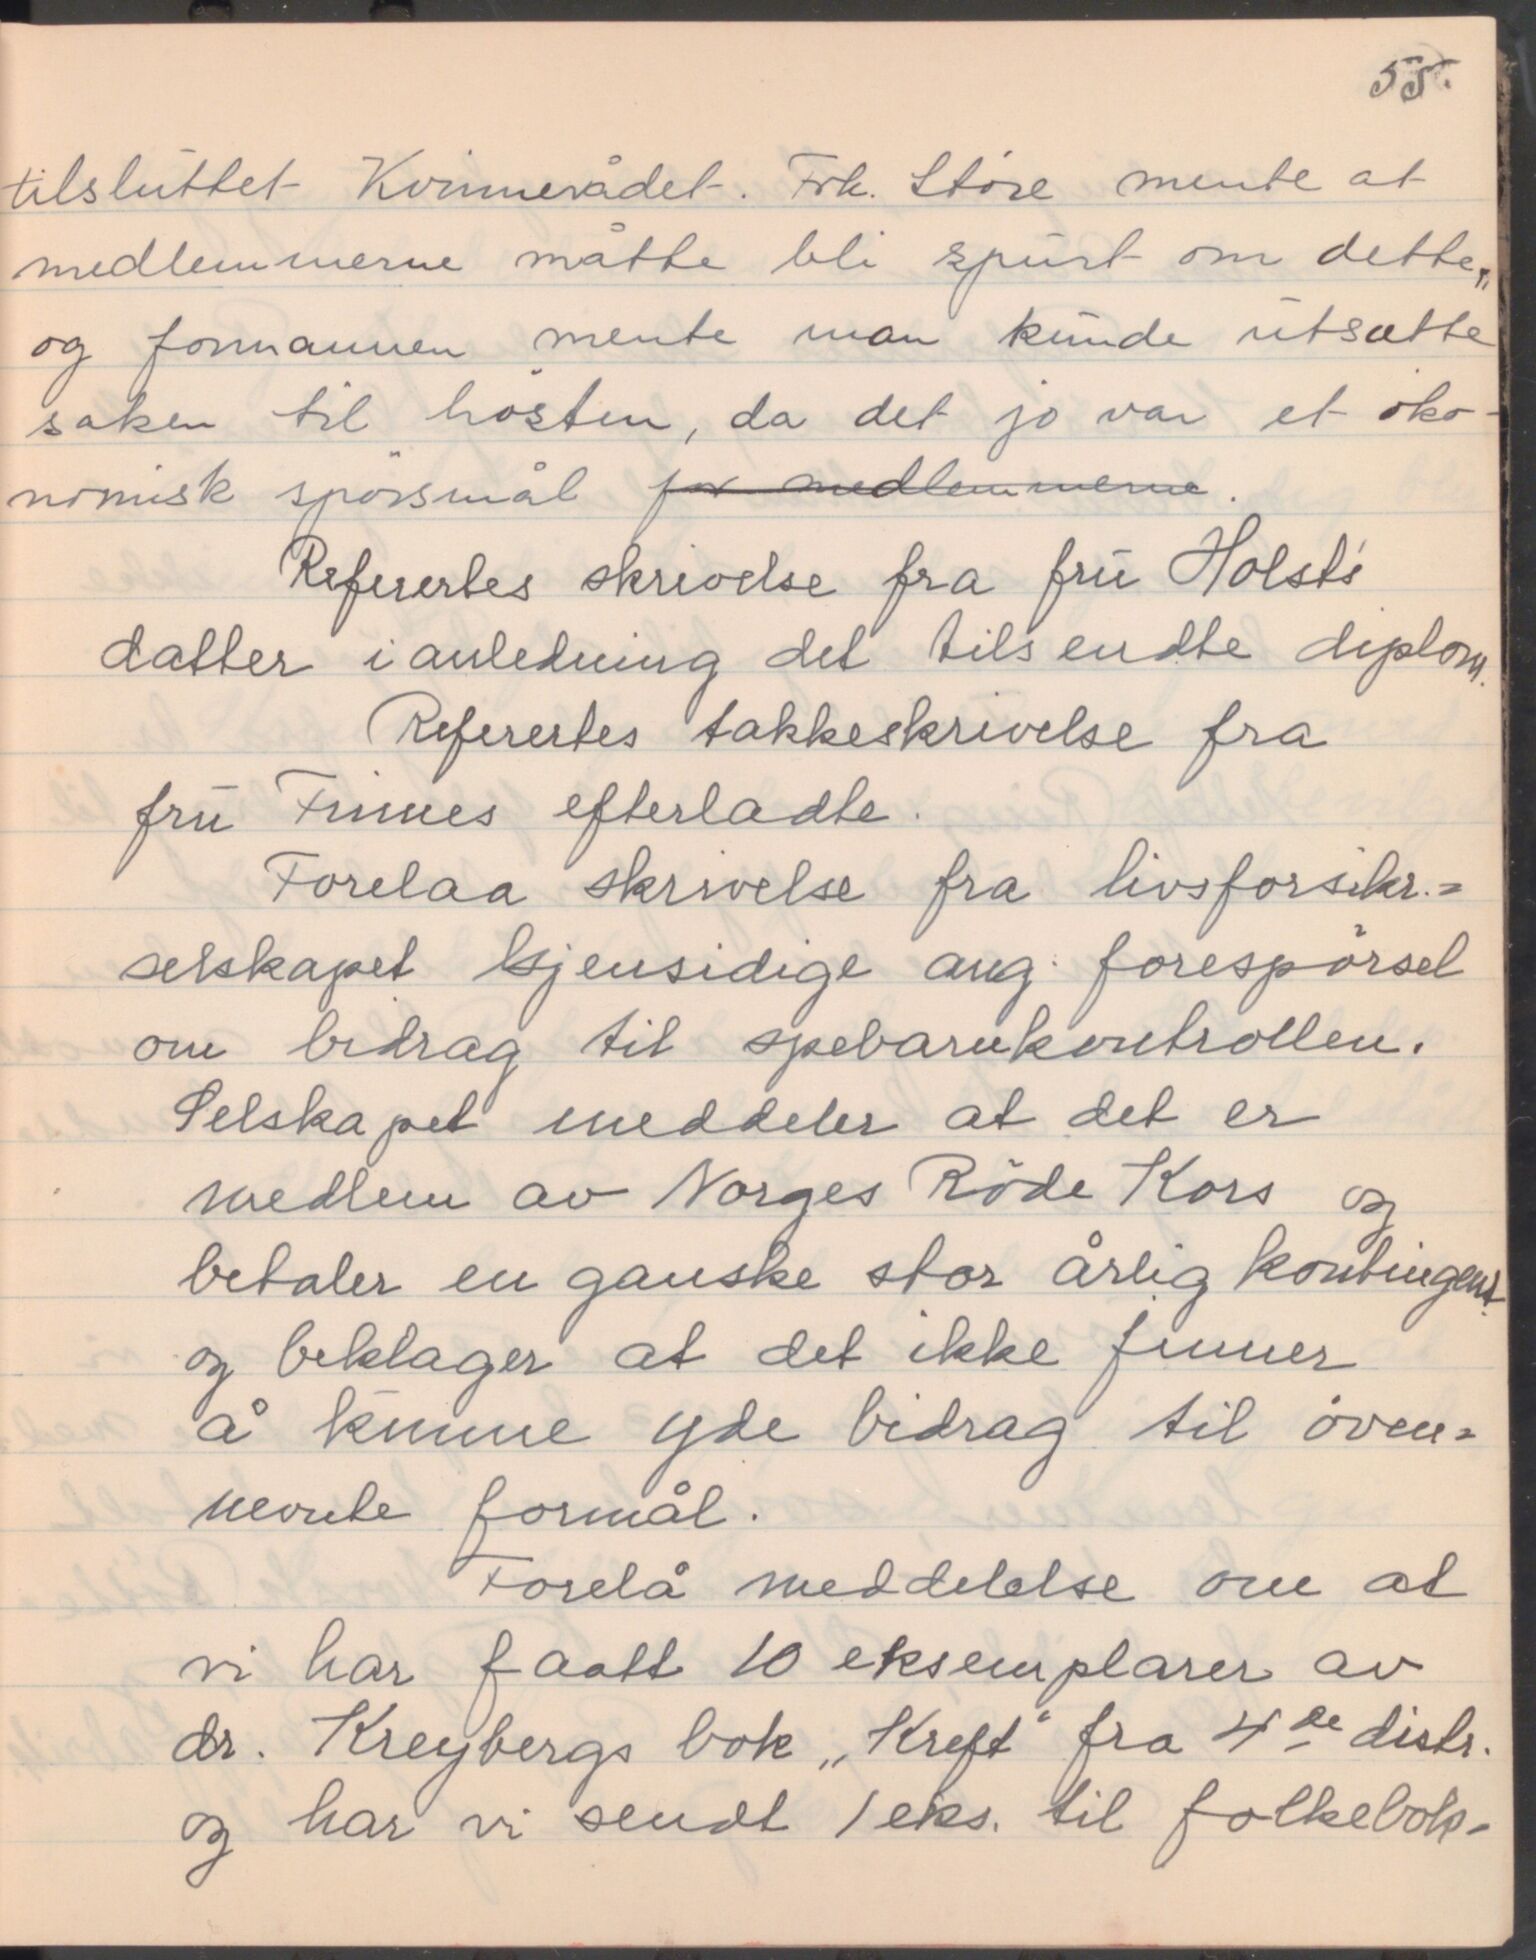 55.
tilsluttet Kvinnerådet. Frk. Störe mente at
medlemmerne måtte bli spurt om dette,
og formannen mente man kunde utsætte
saken til hösten, da det jo var et öko-
nomisk spörsmål for medlemmerne.
Referertes skrivelse fra fru Holsts
datter i anledning det tilsendte diplom.
Referertes takkeskrivelse fra
fru Finnes efterladte.
Forelaa skrivelse fra livsforsikr.=
selskapet Gjensidige ang. forespörsel
om bidrag til spebarnkontrollen.
Selskapet meddeler at det er
medlem av Norges Röde Kors og
betaler en ganske stor årlig kontingent
og beklager at det ikke finner
å kunne yde bidrag til oven=
nevnte formål.
Forelå meddelelse om at
vi har faatt 10 eksemplarer av
dr. Kreybergs bok „Kreft" fra 4de distr.
og har vi sendt 1 eks. til folkebok-